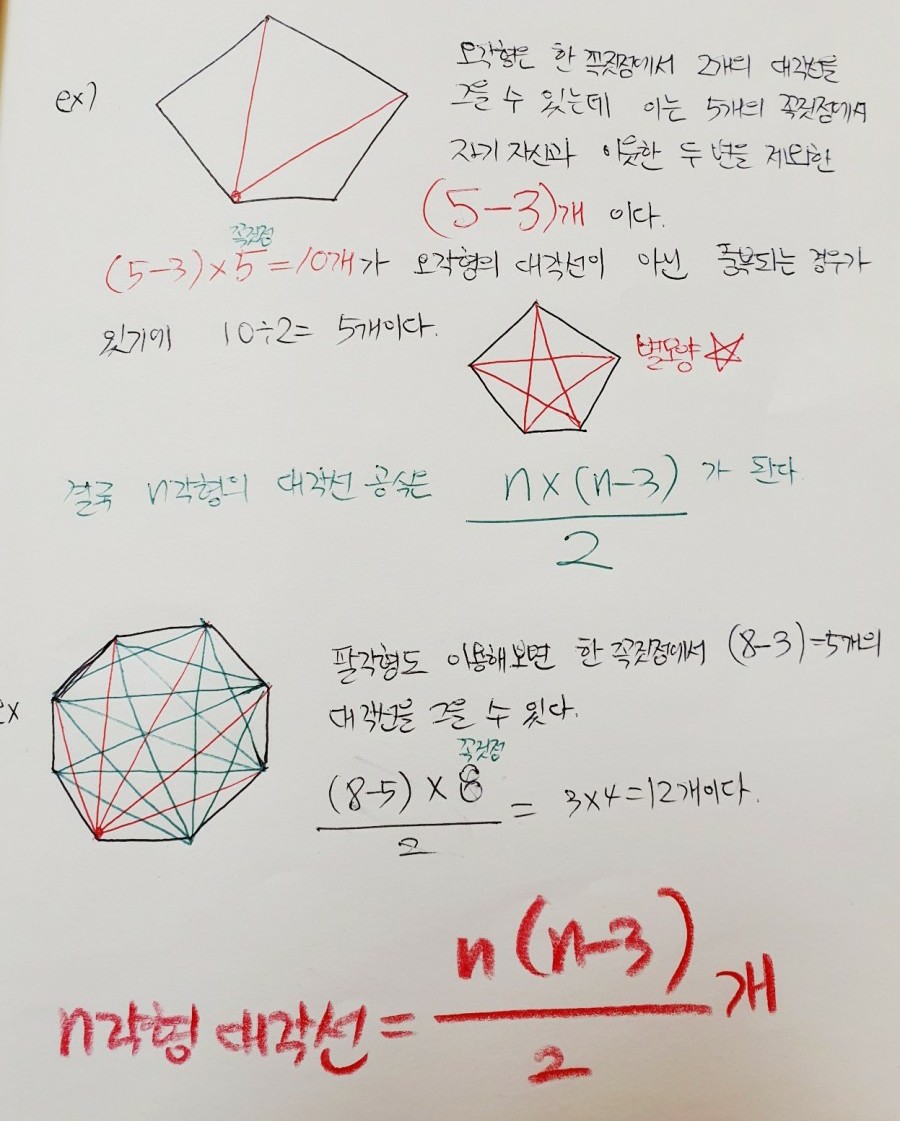 ex)
오각형은 한 꼭짓점에서 2개의 대각선을
그을 수 있는데 이는 5개의 꼭짓점에서
자기 자신과 이웃한 두 변을 제외한
(5-3)개 이다.
꼭짓점
(5-3)×5=10개가 오각형의 대각선이 아닌 중복되는 경우가
있기에 10÷2= 5개이다.
별모양
결국 n각형의 대각선 공식은 n×(n-3)/2 가 된다.
ex
팔각형도 이용해보면 한 꼭짓점에서 (8-3)=5개의
대각선을 그을 수 있다.
꼭짓점
(8-5)×8/2 = 3×4=12개이다.
n각형 대각선 = n(n-3)/2 개